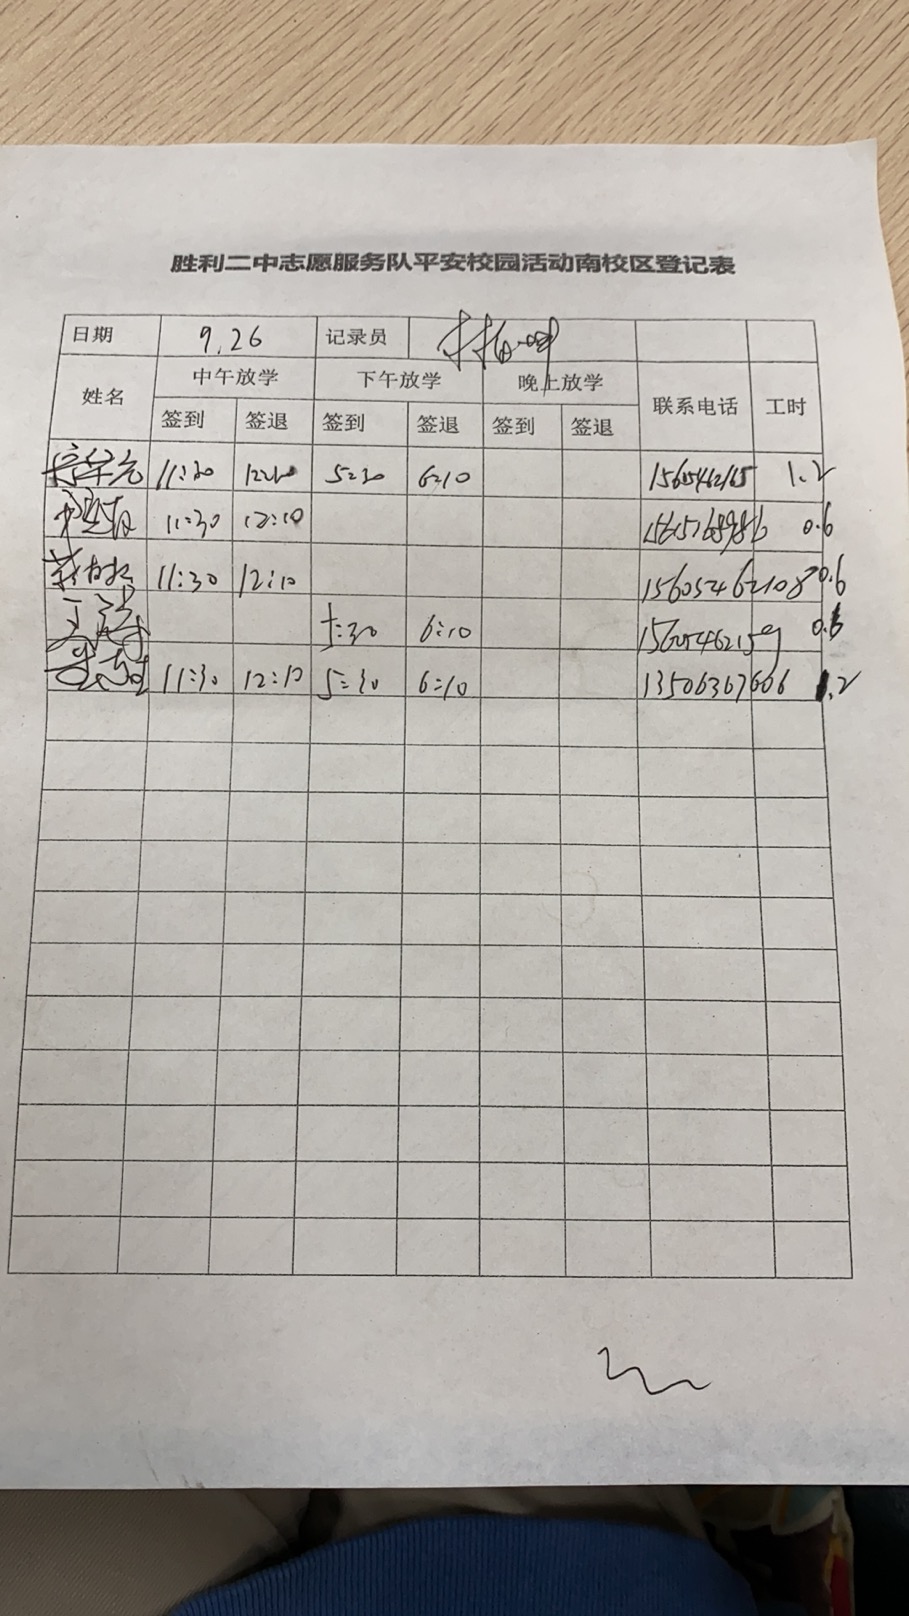 胜利二中志愿服务队平安校园活动南校区登记表
日期 9.26 记录员
姓名 中午放学 下午放学 晚上放学 联系电话 工时
签到 签退 签到 签退 签到 签退
11:30 5:30 6:10 1.2
11:30 12:10 0.6
11:30 12:10 15605462108 0.6
5:30 6:10 15605462159 0.6
11:30 12:10 5:30 6:10 13506367666 1.2